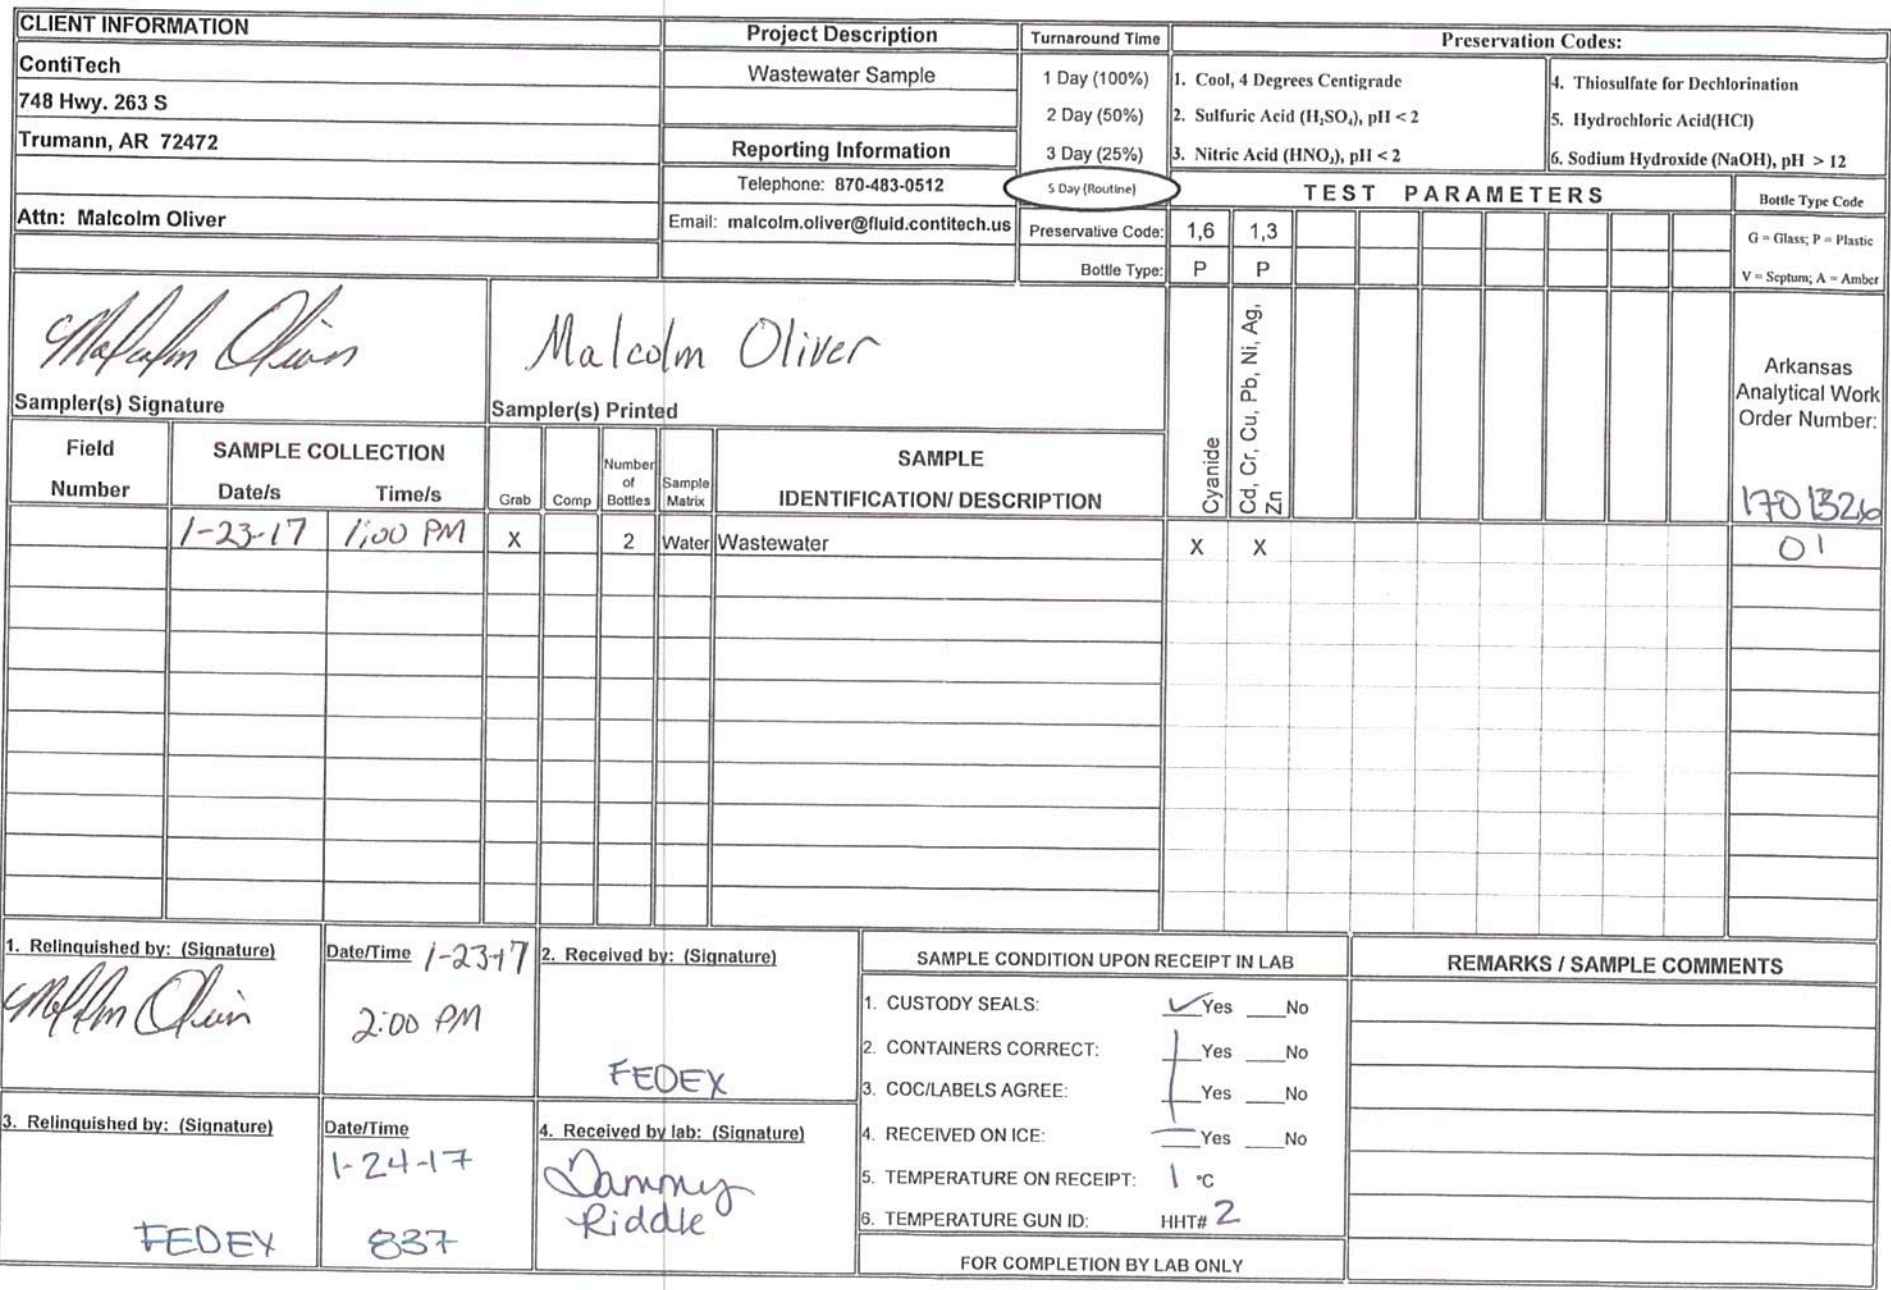 CLIENT INFORMATION
ContiTech
748 Hwy. 263 S
Trumann, AR 72472
Attn: Malcolm Oliver
Project Description
Wastewater Sample
Reporting Information
Telephone: 870-483-0512
Email: malcolm.oliver@fluid.contitech.us
Turnaround Time
1 Day (100%)
2 Day (50%)
3 Day (25%)
5 Day (Routine)
Preservation Codes:
1. Cool, 4 Degrees Centigrade
2. Sulfuric Acid (H₂SO₄), pH < 2
3. Nitric Acid (HNO₃), pH < 2
4. Thiosulfate for Dechlorination
5. Hydrochloric Acid(HCl)
6. Sodium Hydroxide (NaOH), pH > 12
TEST PARAMETERS
Bottle Type Code
G = Glass; P = Plastic
V = Septum; A = Amber
Preservative Code: 1,6 1,3
Bottle Type: P P
Malcolm Oliver
Sampler(s) Signature
Malcolm Oliver
Sampler(s) Printed
Cyanide
Cd, Cr, Cu, Pb, Ni, Ag,
Zn
Arkansas
Analytical Work
Order Number:
1701326
Field
Number
SAMPLE COLLECTION
Date/s Time/s
Grab
Comp
Number
of
Bottles
Sample
Matrix
SAMPLE
IDENTIFICATION/ DESCRIPTION
1-23-17 1:00 PM X 2 Water Wastewater X X 01
1. Relinquished by: (Signature)
Malcolm Oliver
Date/Time 1-23-17
2:00 PM
2. Received by: (Signature)
FEDEX
3. Relinquished by: (Signature)
FEDEX
Date/Time
1-24-17
837
4. Received by lab: (Signature)
Tammy
Riddle
SAMPLE CONDITION UPON RECEIPT IN LAB
1. CUSTODY SEALS: ✓Yes ___No
2. CONTAINERS CORRECT: ___Yes ___No
3. COC/LABELS AGREE: ___Yes ___No
4. RECEIVED ON ICE: ___Yes ___No
5. TEMPERATURE ON RECEIPT: 1 °C
6. TEMPERATURE GUN ID: HHT# 2
FOR COMPLETION BY LAB ONLY
REMARKS / SAMPLE COMMENTS